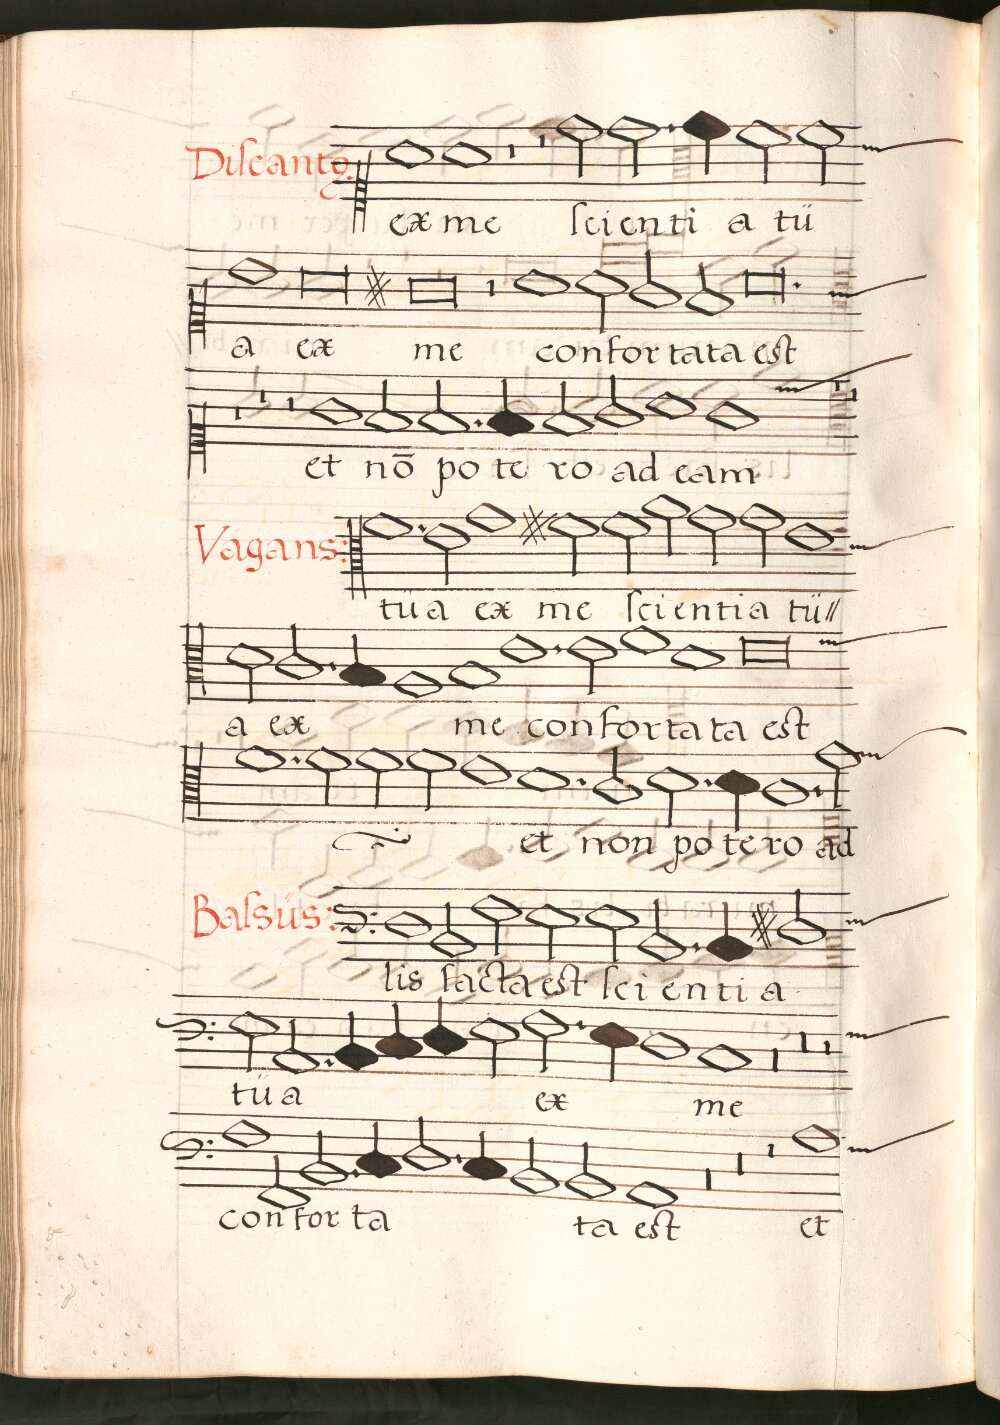 Discantꝰ
ex me scienti a tü
a ex me confortata est
et nō po te ro ad eam
Vagans:
tüa ex me scientia tü//
a ex me confortata est
et non potero ad
Bassüs:
lis facta est scienti a
tüa ex me
confor ta ta est et